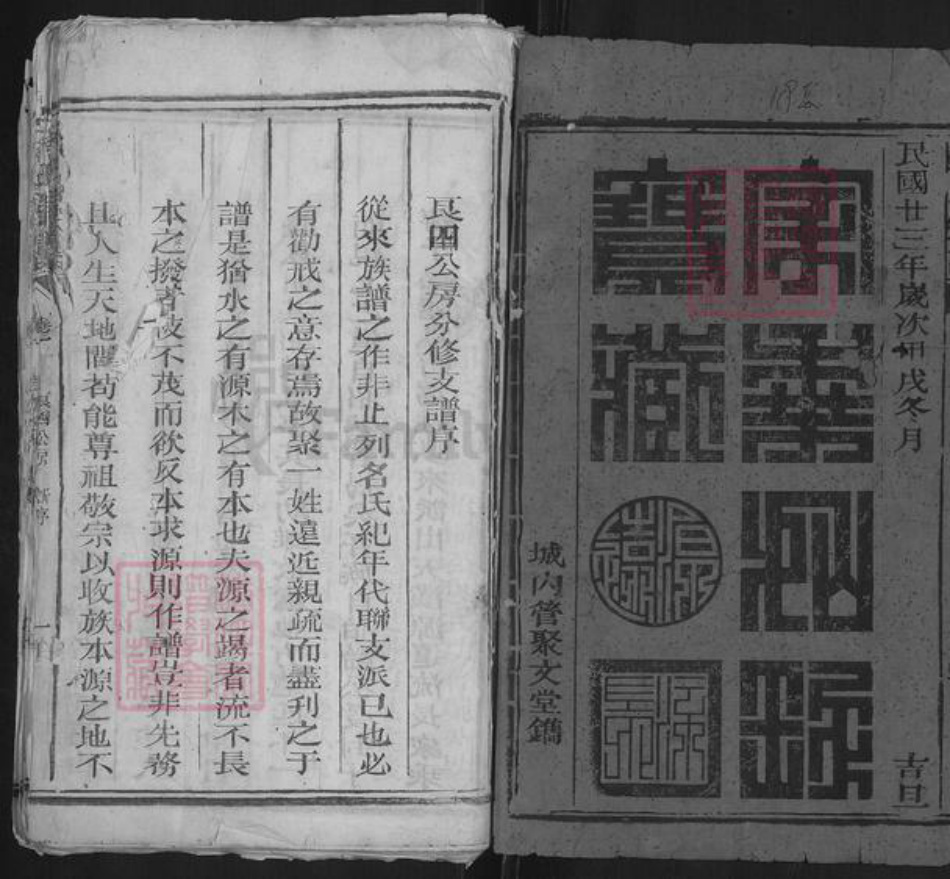 民國廿三年歲次甲戌冬月
吉旦
寶藏
源遠
流長
城內管聚文堂鐫
艮四公房分修支譜序
從來族譜之作非止列名氏紀年代聯支派已也必
有勸戒之意存焉故聚一姓遠近親疏而盡刋之于
譜是猶水之有源木之有本也夫源之竭者流不長
本之撥者枝不茂而欲反本求源則作譜豈非先務
且人生天地間茍能尊祖敬宗以收族本源之地不